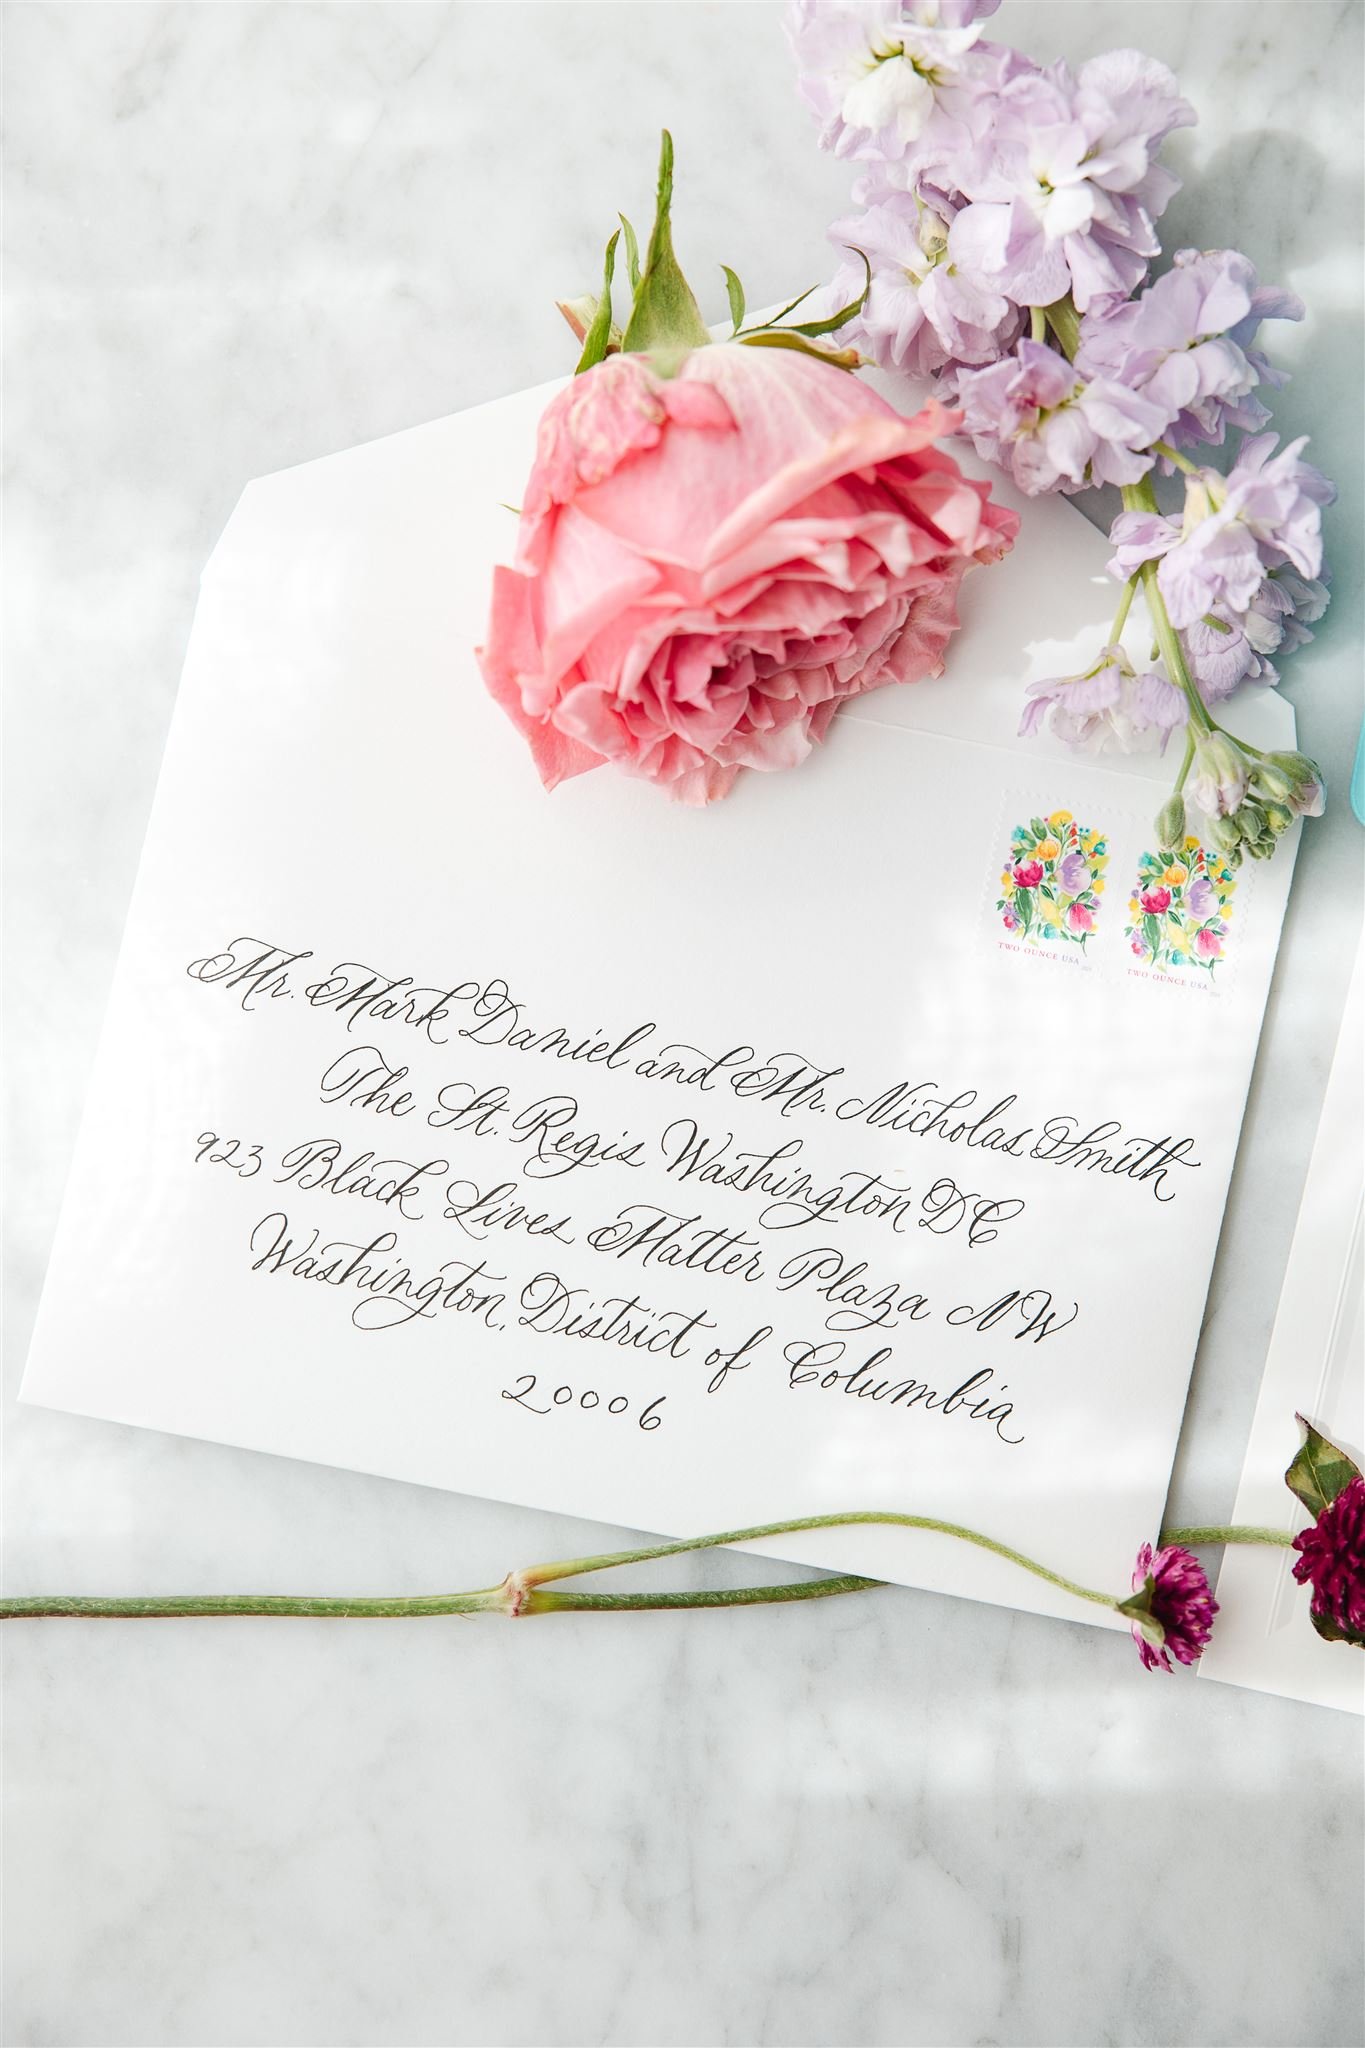 TWO OUNCE USA 2021
TWO OUNCE USA 2021
Mr. Mark Daniel and Mr. Nicholas Smith
The St. Regis Washington DC
923 Black Lives Matter Plaza NW
Washington, District of Columbia
20006